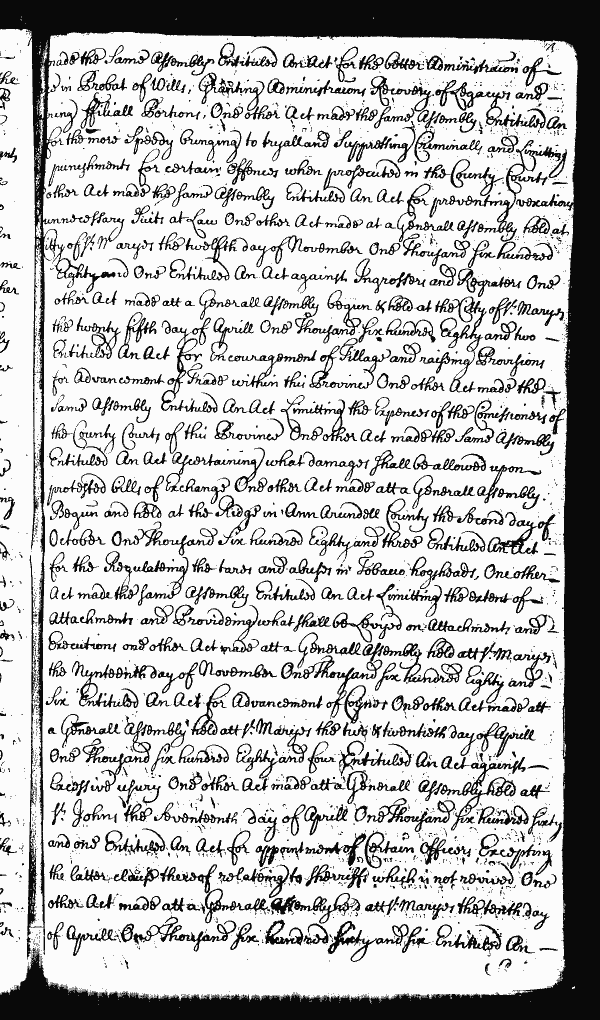 made the Same Assembly Entituled An Act for the better Administracon of
in Probat of Wills, Granting Administracons Recovery of Legacyes and
ffiliall Portions, One other Act made the same Assembly Entituled An
for the more Speedy bringing to tryall and Suppressing Criminalls and Limitting
punishments for certain Offences when prosecuted in the County Courts
other Act made the same Assembly Entituled An Act for preventing vexatious
unnecessary Suits at Law One other Act made at a Generall Assembly held at
City of St. Maryes the twelfth day of November One Thousand Six hundred
Eighty and One Entituled An Act against Ingrossers and Regraters One
other Act made att a Generall Assembly begun & held at the City of St. Maryes
the twenty fifth day of Aprill One Thousand Six hundred Eighty and two
Entituled An Act for Encouragement of Tillage and raising Provisions
for Advancement of Trade within this Province One other Act made the
Same Assembly Entituled An Act Limitting the Expences of the Comissioners of
the County Courts of this Province One other Act made the Same Assembly
Entituled An Act Ascertaining what damages Shall be allowed upon
protested bills of Exchange One other Act made att a Generall Assembly
Begun and held at the Ridge in Ann Arundell County the Second day of
October One Thousand Six hundred Eighty and three Entituled An Act
for the Regulateing the tares and abuses in Tobacco hogsheads, One other
Act made the same Assembly Entituled An Act Limitting the extent of
Attachments and Provideing what shall be Levyed on Attachments and
Executions one other Act made att a Generall Assembly held att St. Maryes
the Nynteenth day of November One Thousand Six hundred Eighty and
Six Entituled An Act for Advancement of Coynes One other Act made att
a Generall Assembly held att St. Maryes the two & twentieth day of Aprill
One Thousand Six hundred Eighty and four Entituled An Act against
Excessive usury One other Act made att a Generall Assembly held att
St. Johns the Seventeenth day of Aprill One Thousand Six hundred Sixty
and one Entituled An Act for appointment of Certain Officers Excepting
the latter clause thereof relateing to Sherriffs which is not revived One
other Act made att a Generall Assembly held att St. Maryes the tenth day
of Aprill One Thousand Six hundred Sixty and Six Entituled An